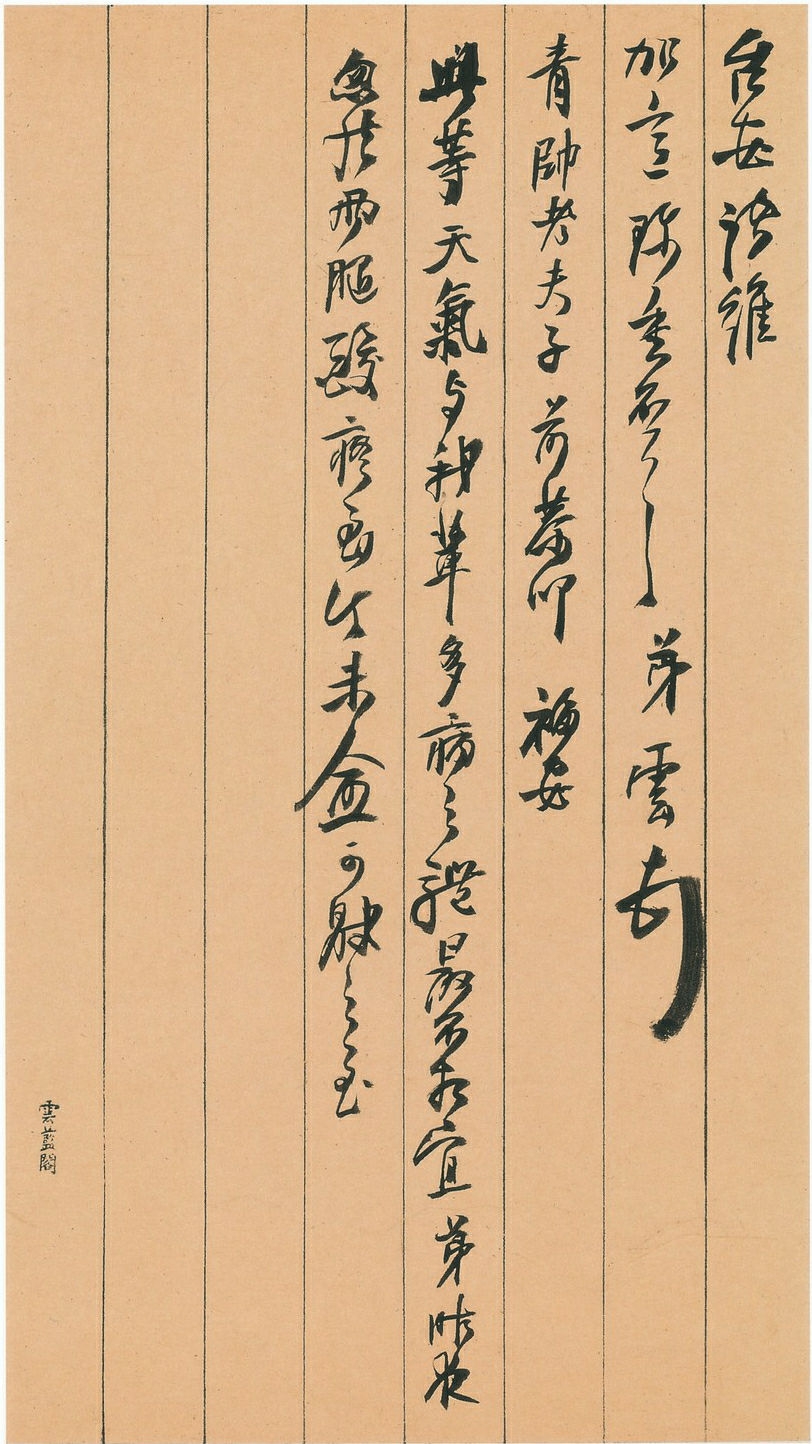 台安諸維
加意珍重不一一 弟雲頓
青帥老夫子前恭叩 福安
此等天氣與我輩多病之體最不相宜弟昨夜
忽於兩腿酸疼至今未愈可駭之至
雲藍閣